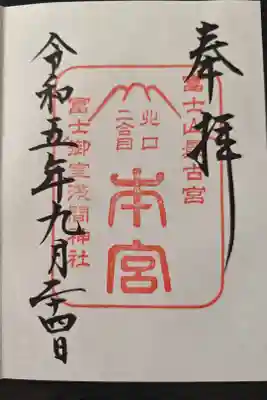 奉拝
富士山最古宮
北口
二合目
本宮
冨士御室浅間神社
令和五年九月二十四日